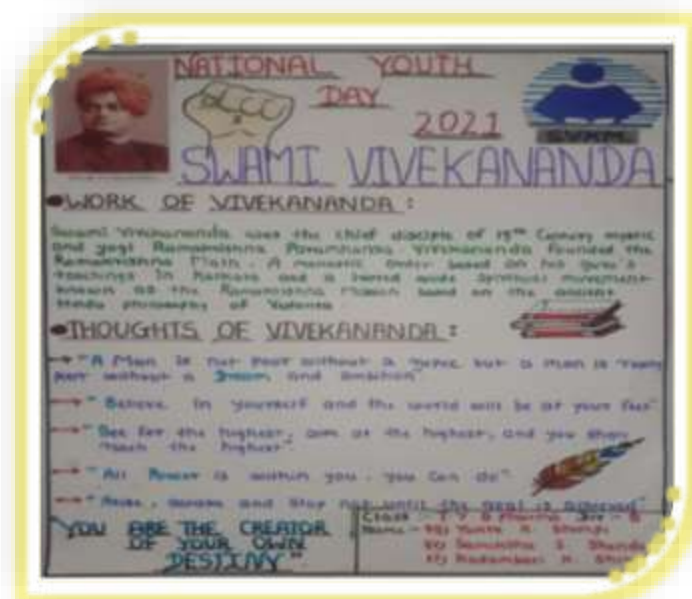 NATIONAL YOUTH
DAY
2021
SWAMI VIVEKANANDA
WORK OF VIVEKANANDA :
Swami Vivekananda was the chief disciple of 19th Century mystic
and yogi Ramakrishna Paramhansa Vivekananda founded the
Ramakrishna Math. A monastic order based on his guru's
teachings in and a world wide spiritual movement
known as the Ramakrishna Mission based on the ancient
Hindu philosophy of Vedanta
THOUGHTS OF VIVEKANANDA :
"A Man is not Poor without a rupee but a man is really
poor without a Dream and ambition"
"Believe in yourself and the world will be at your feet"
" for the highest, aim at the highest, and you shall
reach the highest"
"All Power is within you. you can do"
"Arise, awake and Stop not until the goal is achieved"
YOU ARE THE CREATOR
OF YOUR OWN
DESTINY"
Class - T.Y. B Pharma Div - B
Name -